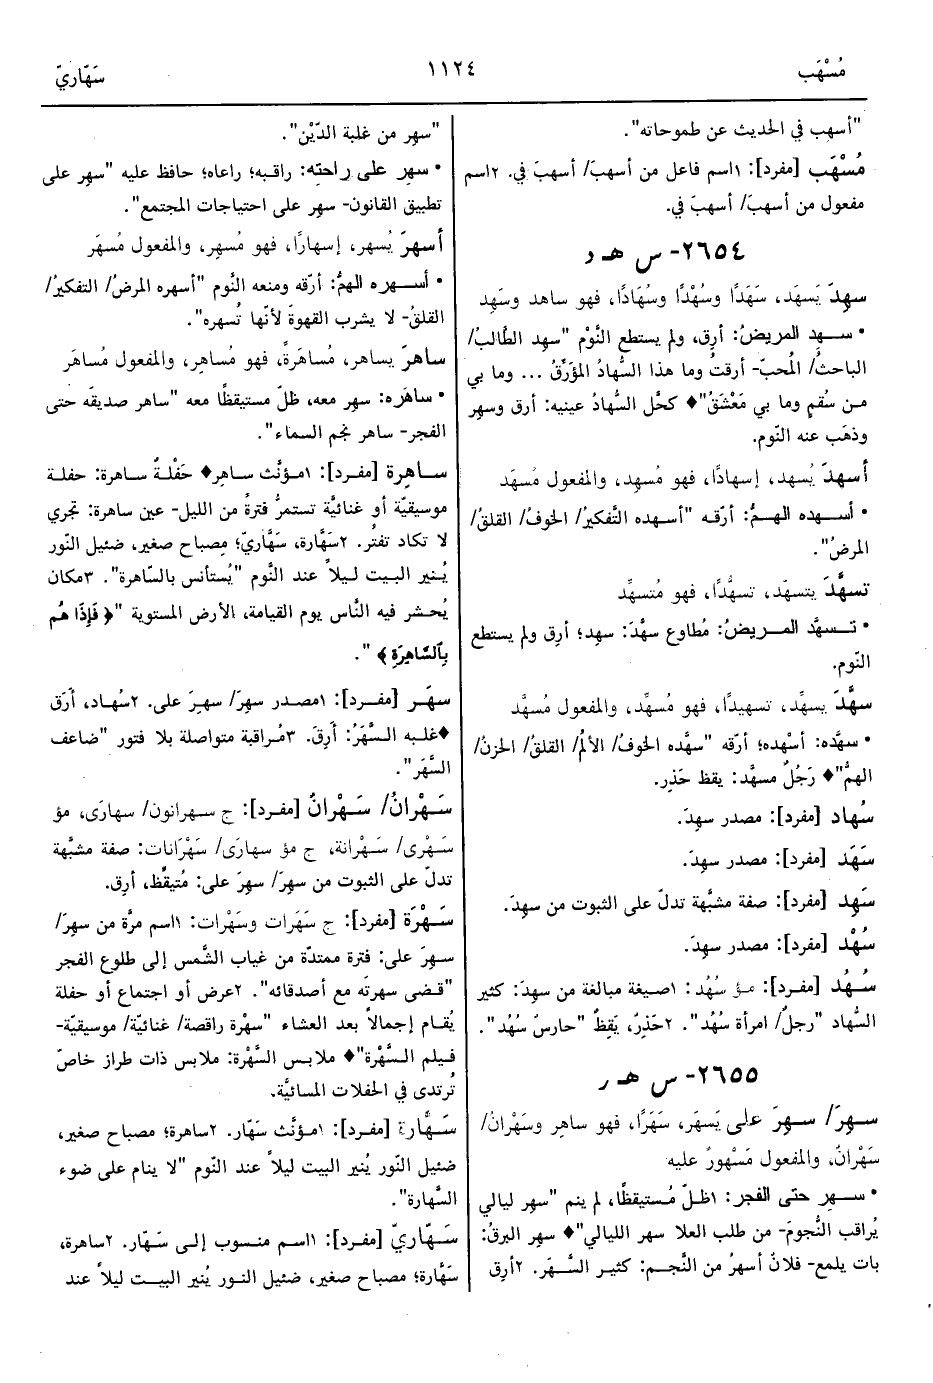 مُسْهَب
١١٢٤
سَهّاريّ
"أسهب في الحديث عن طموحاته".
مُسْهَب [مفرد]: ١اسم فاعل من أسهبَ/ أسهبَ في. ٢اسم
مفعول من أسهبَ/ أسهبَ في.
٢٦٥٤- س هـ د
سهِدَ يَسهَد، سَهَدًا وسُهْدًا وسُهَادًا، فهو ساهد وسَهِد
• سـهد المريضُ: أرِق، ولم يستطع النَّوْم "سهِد الطَّالبُ/
الباحثُ/ المُحبّ- أرقتُ وما هذا السُّهادُ المؤرِّقُ ... وما بي
مـن سُقمٍ وما بي مَعْشَقُ"♦ كحَّل السُّهادُ عينيه: أرق وسهِر
وذهَب عنه النّوم.
أسهدَ يُسهد، إسهادًا، فهو مُسهِد، والمفعول مُسهَد
• أسـهده الهـمُّ: أرّقـه "أسهده التَّفكيرُ/ الخوفُ/ القلقُ/
المرضُ".
تسهَّدَ يتسهّد، تسهُّدًا، فهو مُتسهِّد
• تـسهَّد المـريضُ: مُطاوع سهَّدَ: سهِد؛ أرِق ولم يستطع
النّوم.
سهَّدَ يسهِّد، تسهيدًا، فهو مُسهِّد، والمفعول مُسهَّد
• سهَّده: أسْهده؛ أرّقه "سهَّده الخوفُ/ الألمُ/ القلقُ/ الحزنُ/
الهمُّ"♦ رَجُلٌ مسهَّد: يقظ حَذِر.
سُهاد [مفرد]: مصدر سهِدَ.
سَهَد [مفرد]: مصدر سهِدَ.
سَهِد [مفرد]: صفة مشبَّهة تدلّ على الثبوت من سهِدَ.
سُهْد [مفرد]: مصدر سهِدَ.
سُهُد [مفرد]: مؤ سُهُد: ١صيغة مبالغة من سهِدَ: كثير
السُّهاد "رجلٌ/ امرأة سُهُد". ٢حَذِرٌ، يَقِظٌ "حارسٌ سُهُد".
٢٦٥٥- س هـ ر
سـهِرَ/ سـهِرَ على يَسهَر، سَهَرًا، فهو ساهِر وسَهْرانُ/
سَهْرانٌ، والمفعول مَسْهورٌ عليه
• سـهِر حتى الفجر: ١ظلّ مُستيقظًا، لم ينم "سهِر ليالي
يُراقب النُّجومَ- من طلب العلا سهر الليالي"♦ سهِر البرقُ:
بات يلمع- فلانٌ أسهرُ من النَّجـم: كثيـر السَّـهَر. ٢أرِق
"سهِر من غلبة الدّيْن".
• سهِر على راحتِه: راقبه؛ راعاه؛ حافظ عليه "سهِر على
تطبيق القانون- سهِر على احتياجات المجتمع".
أسهرَ يُسهر، إسهارًا، فهو مُسهِر، والمفعول مُسهَر
• أسـهره الهمُّ: أرّقه ومنعه النَّوم "أسهره المرضُ/ التفكيرُ/
القلقُ- لا يشرب القهوةَ لأنّها تُسهره".
ساهرَ يساهر، مُساهَرةً، فهو مُساهِر، والمفعول مُساهَر
• ساهَرَه: سهِر معه، ظلّ مستيقظًا معه "ساهر صديقَه حتى
الفجر- ساهر نجم السماء".
سـاهِرة [مفـرد]: ١مؤنَّث ساهِر♦ حَفْلةٌ سـاهرة: حفلة
موسيقيّة أو غنائيَّة تستمرُّ فترةً من الليل- عين ساهرة: تجري
لا تكاد تفتُر. ٢سَهَّارة، سَهَّاريّ؛ مِصباح صغير، ضئيل النّور
يُـنير البيت ليـلاً عند النَّوم "يُستأنس بالسّاهرة". ٣مكان
يُحشر فيه النَّاس يوم القيامة، الأرض المستوية "﴿ فَإِذَا هُم
بِٱلسَّاهِرَةِ ﴾ ".
سهَـر [مفـرد]: ١مصدر سهِرَ/ سهِرَ على. ٢سُهاد، أَرَق
♦غلبه السَّهَرُ: أَرِقَ. ٣مُراقبة متواصلة بلا فتور "ضاعف
السَّهَر".
سَـهْرانُ/ سَـهْرانٌ [مفرد]: ج سـهرانون/ سهارَى، مؤ
سَـهْرى/ سَهْرانة، ج مؤ سهارَى/ سَهْرَانات: صفة مشبَّهة
تدلّ على الثبوت من سهِرَ/ سهِرَ على: مُتيقِّظ، أرِق.
سَـهْرَة [مفرد]: ج سَهَرات وسَهْرات: ١اسم مرَّة من سهِرَ/
سهِرَ على: فترة ممتدّة من غياب الشَّمس إلى طلوع الفجر
"قـضى سهرتَه مع أصدقائه". ٢عرض أو اجتماع أو حفلة
يُقـام إجمـالاً بعد العشاء "سهْرة راقصة/ غنائيّة/ موسيقيّة-
فـيلم الـسَّهْرة"♦ ملابـس السَّهْرة: ملابس ذات طراز خاصّ
تُرتدى في الحفلات المسائيَّة.
سَـهَّارة [مفرد]: ١مؤنَّث سَهّار. ٢ساهرة؛ مصباح صغير،
ضئيل النّور يُنير البيت ليلاً عند النّوم "لا ينام على ضوء
السَّهارة".
سَـهّاريّ [مفرد]: ١اسم منسوب إلـى سَهّار. ٢ساهرة،
سَهَّارة؛ مصباح صغير، ضئيل النـور يُنير البيـت ليلاً عند